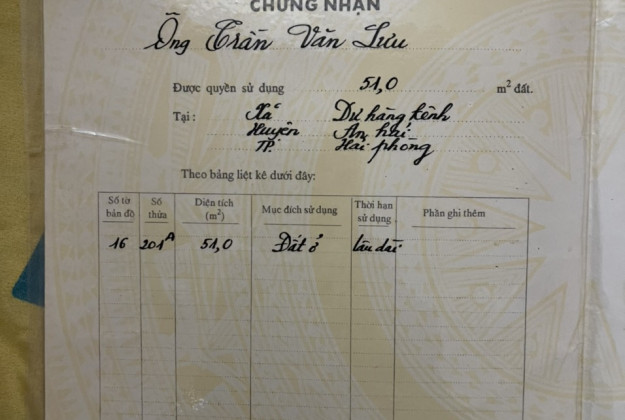 CHỨNG NHẬN
Ông Trần Văn Lưu
Được quyền sử dụng 51,0 m² đất.
Tại: Xã Dư hàng kênh
Huyện An hải
TP. Hải phòng
Theo bảng liệt kê dưới đây:
Số tờ bản đồ Số thửa Diện tích (m²) Mục đích sử dụng Thời hạn sử dụng Phần ghi thêm
16 201A 51,0 Đất ở lâu dài